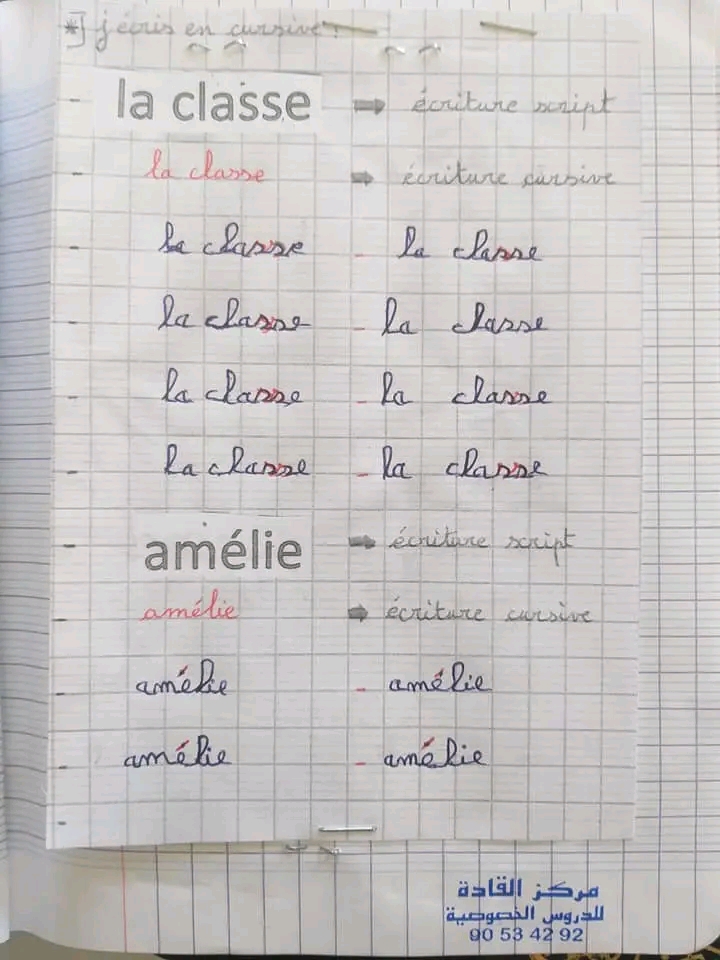 *] j'écris en cursive :
- la classe ➡ écriture script
- la classe ➡ écriture cursive
- la classe - la classe
- la classe - la classe
- la classe - la classe
- la classe - la classe
- amélie ➡ écriture script
- amélie ➡ écriture cursive
- amélie - amélie
- amélie - amélie
-
مركز القادة
للدروس الخصوصية
90 53 42 92